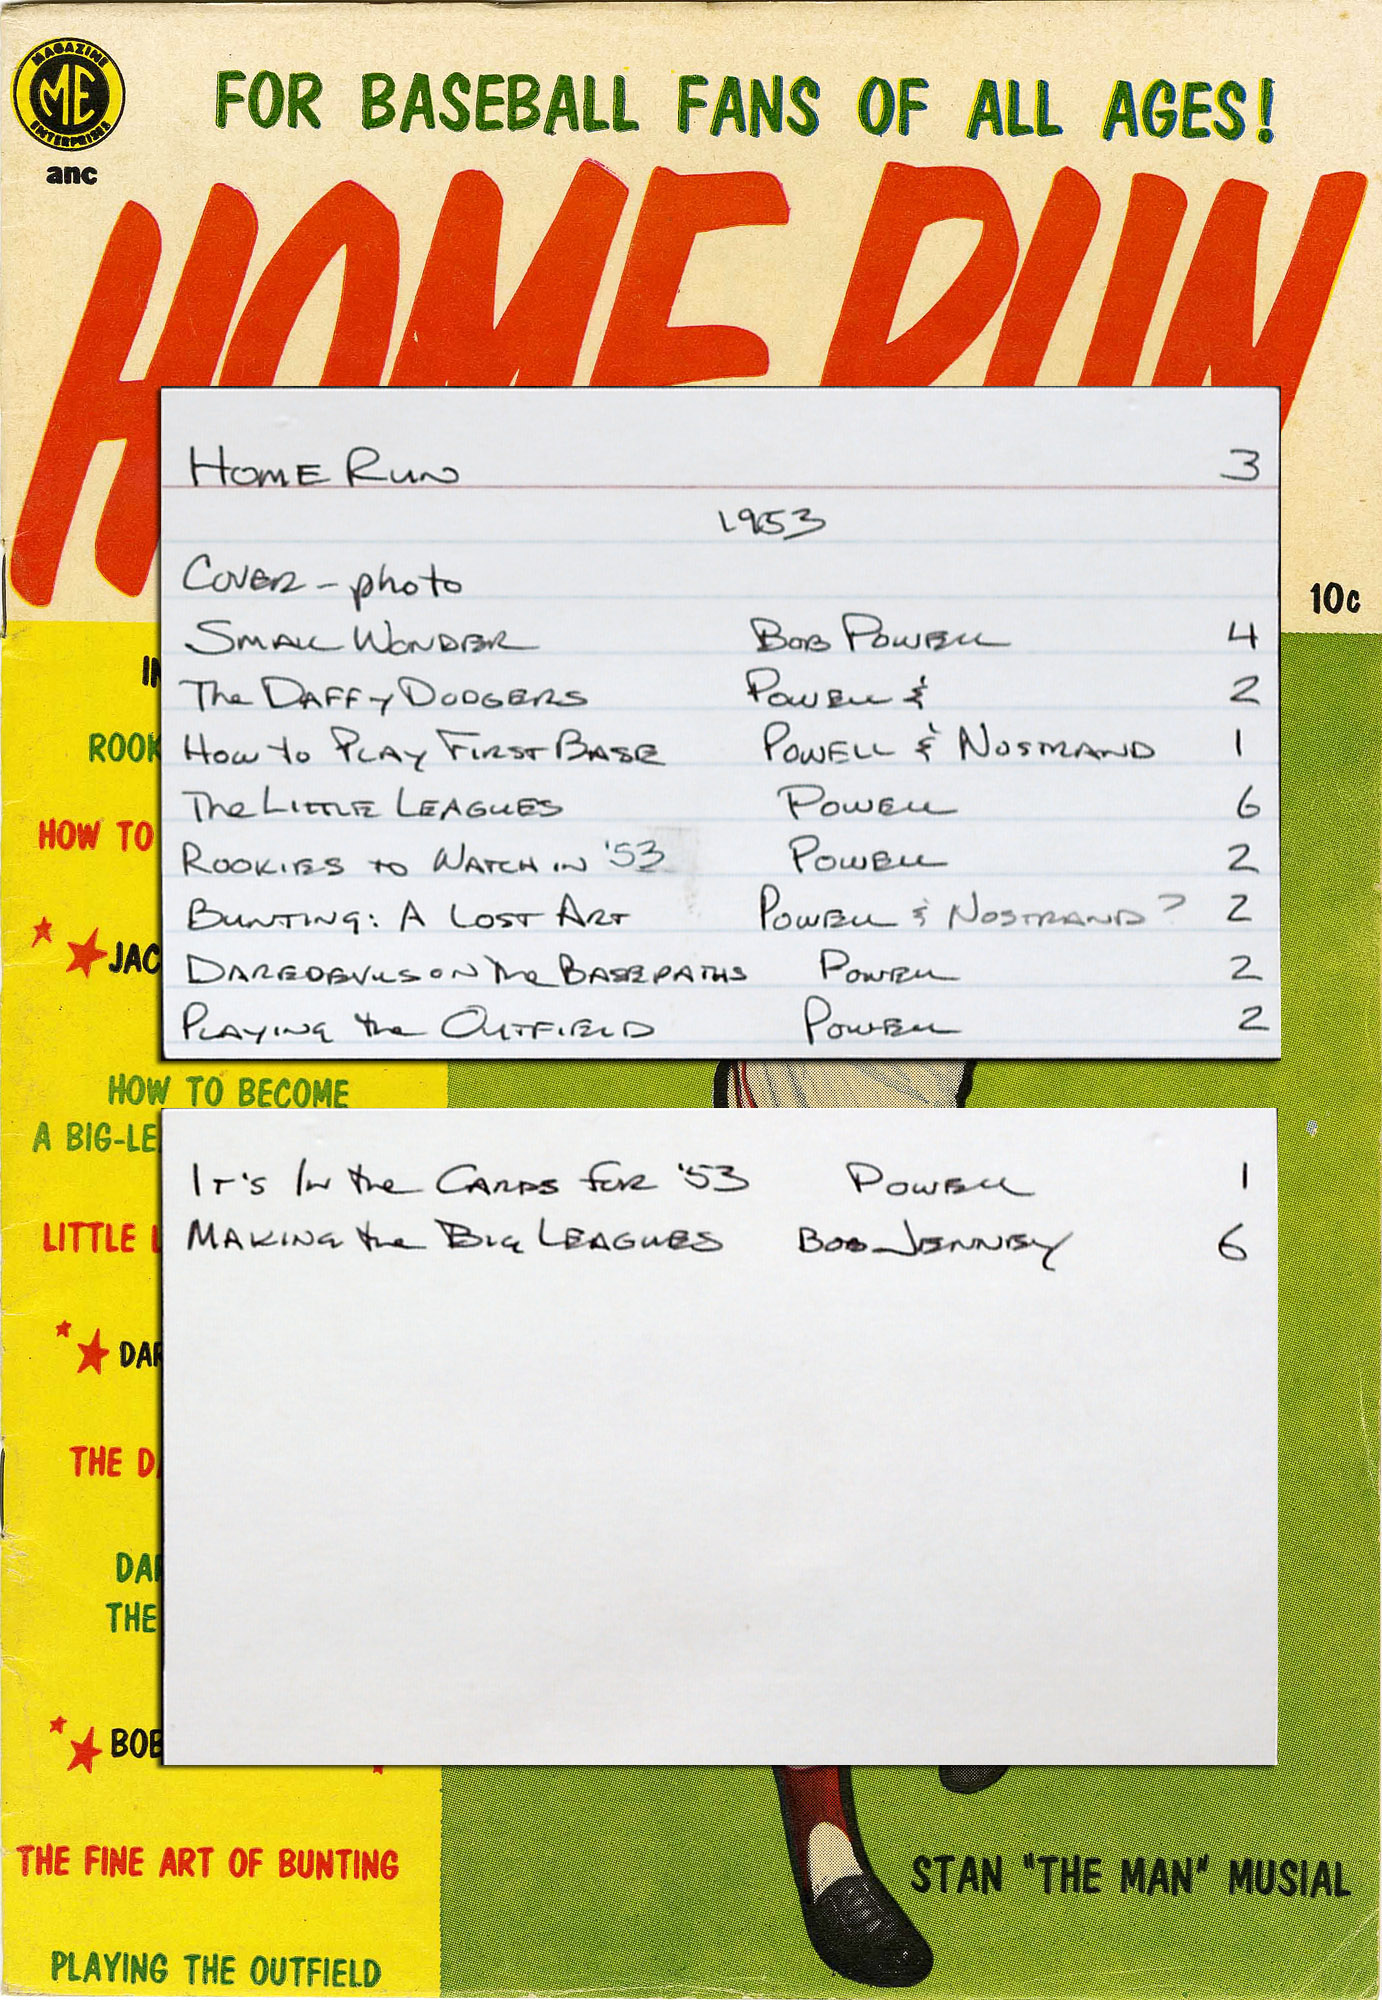 MAGAZINE
ME
ENTERPRISES
anc
FOR BASEBALL FANS OF ALL AGES!
HOME RUN
10c
Home Run 3
1953
Cover - photo
Small Wonder Bob Powell 4
The Daffy Dodgers Powell & 2
How to Play First Base Powell & Nostrand 1
The Little Leagues Powell 6
Rookies to Watch in '53 Powell 2
Bunting: A Lost Art Powell & Nostrand? 2
Daredevils on the Basepaths Powell 2
Playing the Outfield Powell 2
It's In the Cards for '53 Powell 1
Making the Big Leagues Bob Jenney 6
IN
ROOK
HOW TO
JAC
HOW TO BECOME
A BIG-LE
LITTLE L
DAR
THE DA
DAR
THE
BOB
THE FINE ART OF BUNTING
PLAYING THE OUTFIELD
STAN "THE MAN" MUSIAL